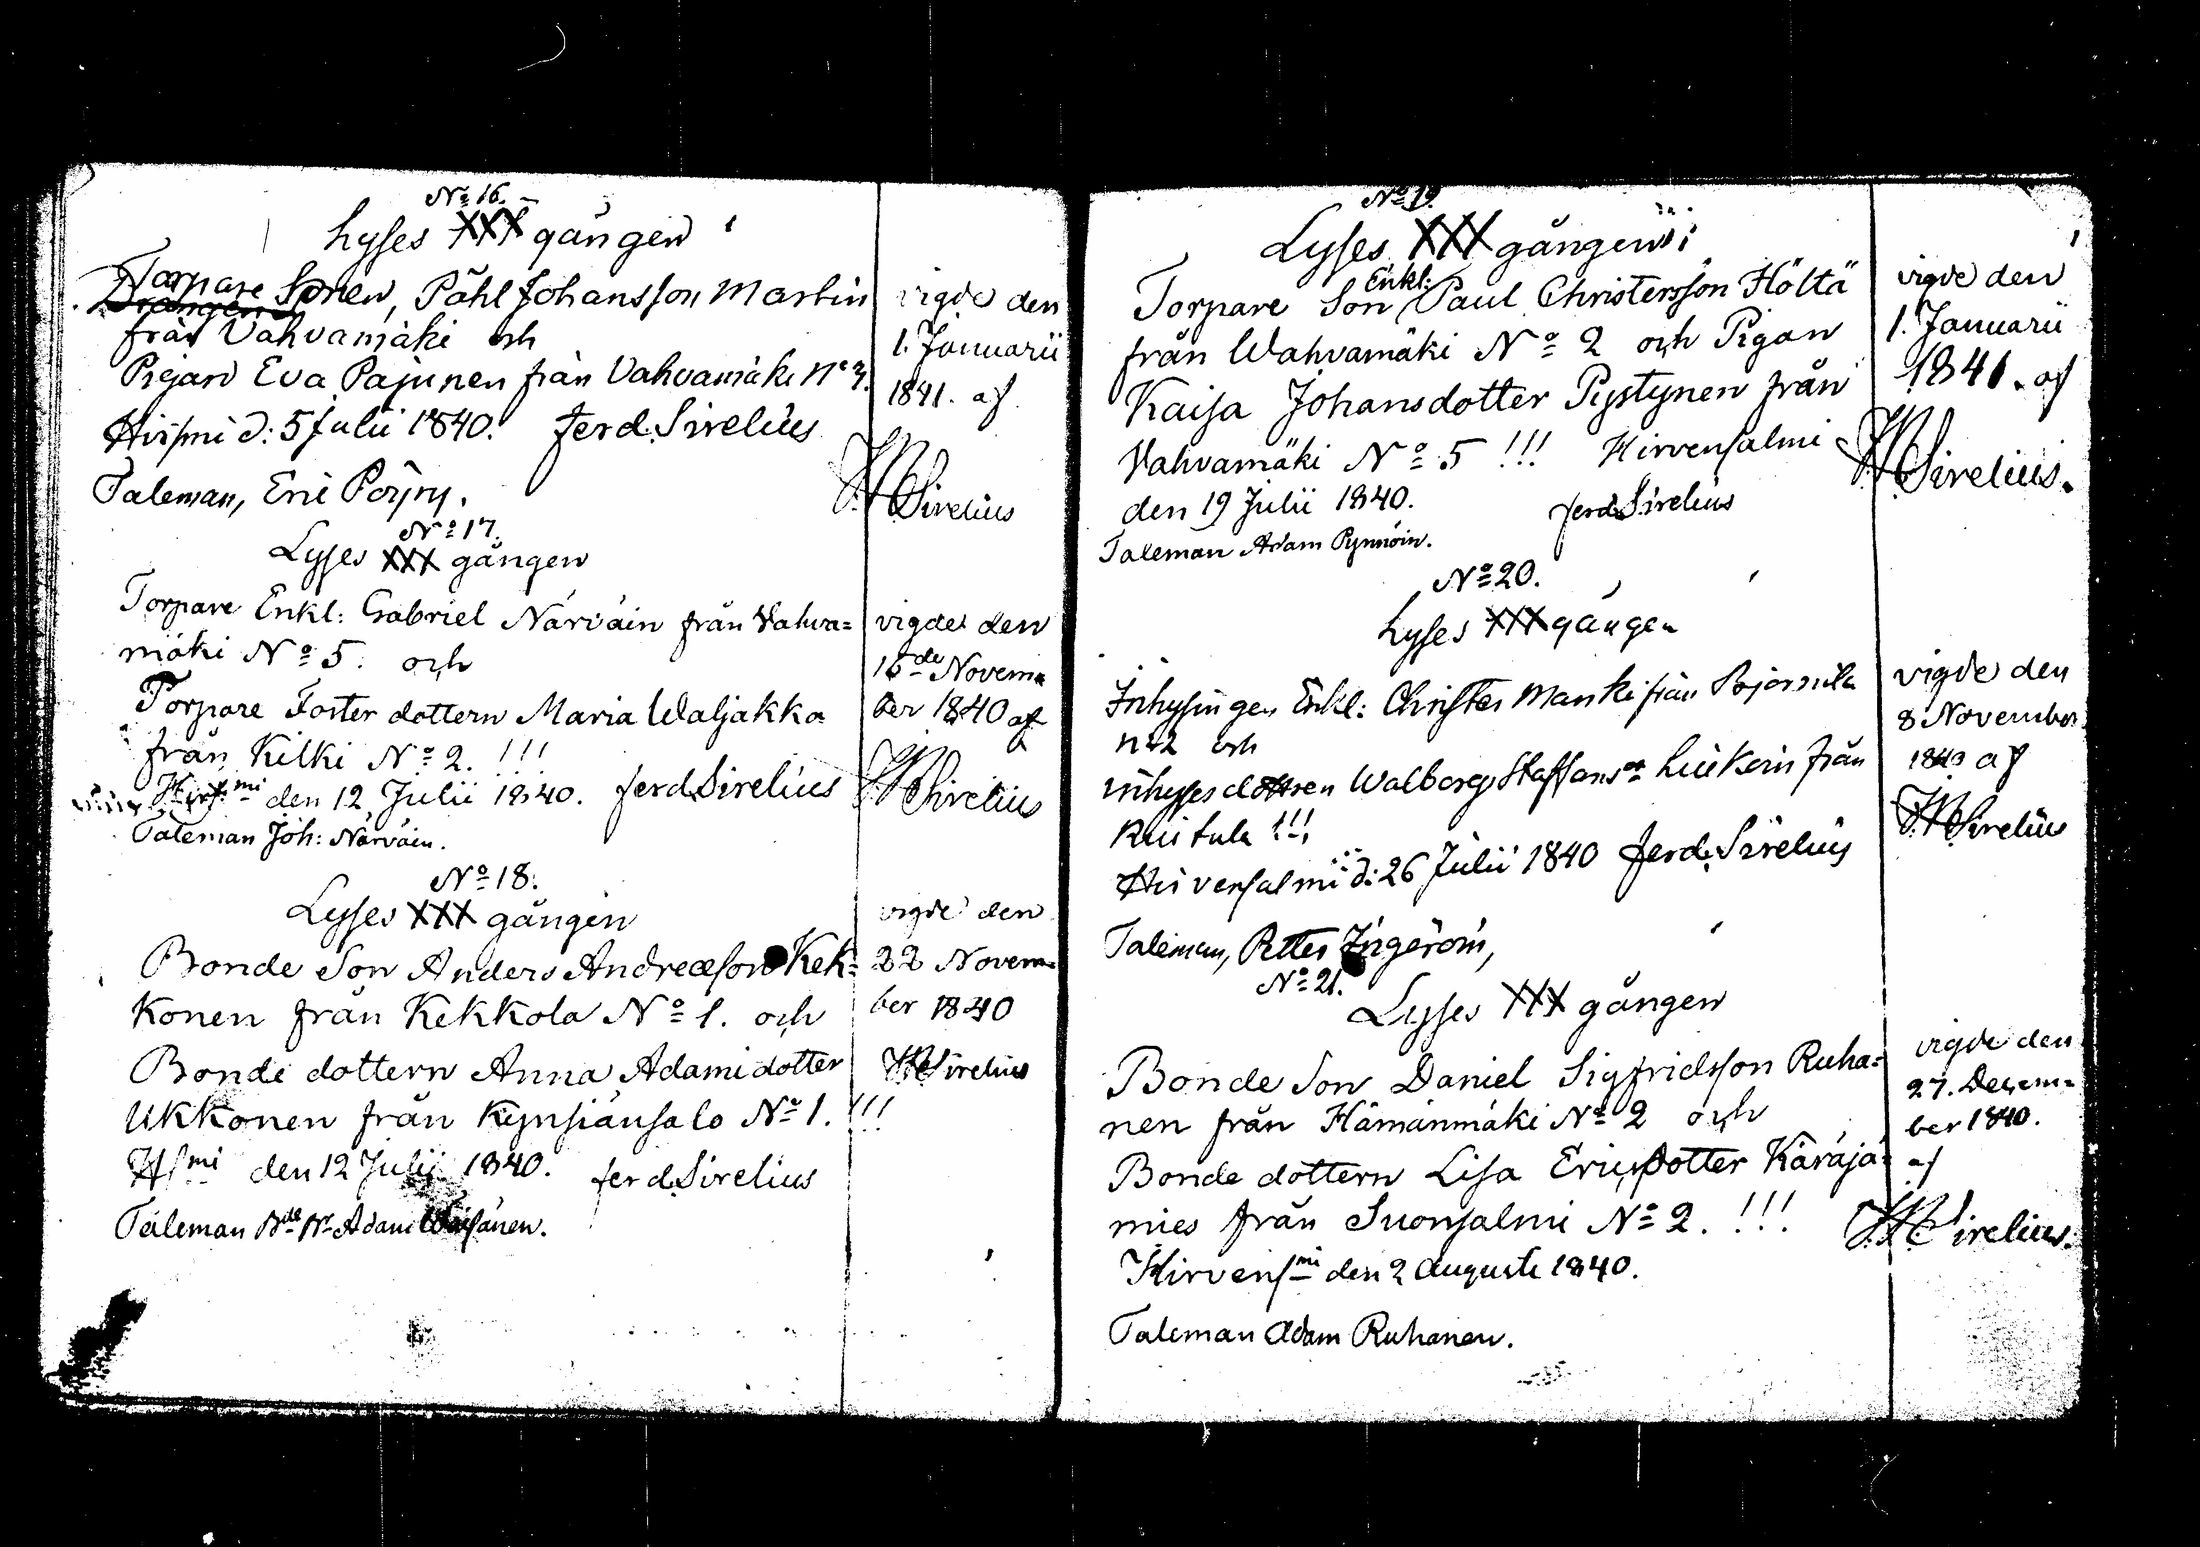 No 16.
Lyses XXX gången
Torpare Sonen, Påhl Johansson Martin
Drängen
från Vahvamäki och
Pigan Eva Pajunen från Vahvamäki No 3.
Hirfmi d: 5 Julii 1840. Ferd. Sirelius
Taleman, Eric Pöyry.
vigde den
1. Januarii
1841. af
Sirelius
No 17.
Lyses XXX gången
Torpare Enkl: Gabriel Närväin från Vahva=
mäki No 5. och
Torpare Foster dottern Maria Waljakka
från Kilki No 2. !!!
Hirfmi den 12 Julii 1840. Ferd. Sirelius
Taleman Joh: Närväin.
vigde den
15de Novem=
ber 1840 af
Sirelius
No 18.
Lyses XXX gången
Bonde Son Anders Andreæson Kek=
konen från Kekkola No 1. och
Bonde dottern Anna Adamidotter
Ukkonen från Kynsiänsalo No 1. !!!
Hfmi den 12 Julii 1840. Ferd. Sirelius
Taleman Adam
vigde den
22 Novem=
ber 1840
Sirelius
No 19.
Lyses XXX gången
Torpare Son Enkl: Paul Christersson Höltä
från Wahvamäki No 2 och Pigan
Kaisa Johansdotter Pystynen från
Vahvamäki No 5 !!! Hirvensalmi
den 19 Julii 1840. Ferd. Sirelius
Taleman Adam Pynnöin.
vigde den
1. Januarii
1841. af
Sirelius.
No 20.
Lyses XXX gången
Inhysingen Enkl: Christer Manki från
n:2 och
inhyses dottren Walborg Staffansdr Liukoin från
!!!
Hirvensalmi d: 26 Julii 1840 Ferd. Sirelius
Taleman, Petter Ingeroin,
vigde den
8 November
1840 af
Sirelius
No 21.
Lyses XXX gången
Bonde Son Daniel Sigfridsson Ruha=
nen från Hämänmäki No 2 och
Bonde dottern Lisa Ericsdotter Käräjä=
mies från Suonsalmi No 2. !!!
Hirvensmi den 2 Augusti 1840.
Taleman Adam Ruhanen.
vigde den
27. Decem=
ber 1840.
af
Sirelius.